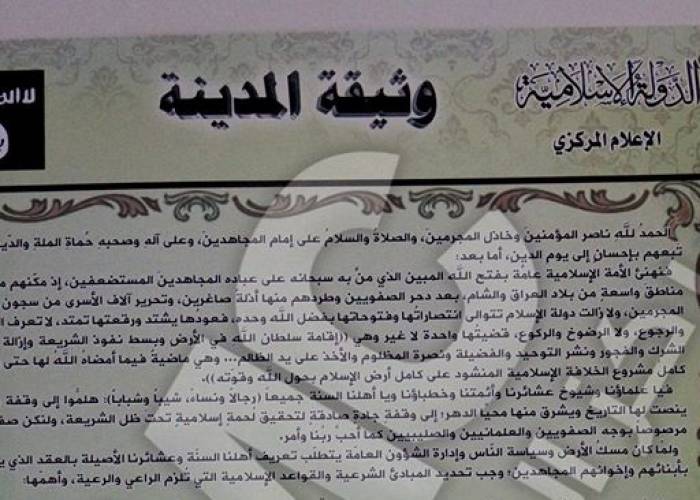 الدولة الإسلامية
وثيقة المدينة
الإعلام المركزي
لا إله
الحمدُ للَّه ناصر المؤمنين وخاذل المجرمين، والصلاةُ والسلامُ على إمام المجاهدين، وعلى آله وصحبه حُماة الملة
تبعهم بإحسان إلى يوم الدين، أما بعد:
فنهنئ الأمة الإسلامية عامة بفتح الله المبين الذي منّ به سبحانه على عباده المجاهدين المستضعفين، إذ مكّنهم
مناطق واسعة من بلاد العراق والشام، بعد دحر الصفويين وطردهم منها أذلة صاغرين، وتحرير آلاف الأسرى من سجون
المجرمين، ولا زالت دولة الإسلام تتوالى انتصاراتُها وفتوحاتها بفضل الله وحده، فعودُها يشتد ورقعتها تمتد، لا تعرف
والرجوع، ولا الرضوخ والركوع، قضيتها واحدة لا غير وهي ((إقامة سلطان الله في الأرض وبسط نفوذ الشريعة وإزالة
الشرك والفجور ونشر التوحيد والفضيلة ونصرة المظلوم والأخذ على يد الظالم... وهي ماضية فيما أمضاه اللَّهُ لها حتى
كامل مشروع الخلافة الإسلامية المنشود على كامل أرض الإسلام بحول اللَّه وقوته)).
فيا علماؤنا وشيوخ عشائرنا وأئمتنا وخطباؤنا ويا أهلنا السنة جميعا (رجالا ونساء، شيبا وشبابا): هلمّوا إلى وقفة
ينصت لها التاريخ ويشرق منها محيا الدهر؛ إلى وقفة جادة صادقة لتحقيق لُحمةٍ إسلامية تحت ظل الشريعة، ولنكن
مرصوصاً بوجه الصفويين والعلمانيين والصليبيين كما أحب ربُنا وأمر.
ولما كان مسكُ الأرض وسياسة النّاس وإدارة الشؤون العامة يتطلّب تعريف أهلنا السنّة وعشائرنا الأصيلة بالعقد الذي
بأبنائهم وإخوانهم المجاهدين؛ وجب تحديد المبادئ الشرعية والقواعد الإسلامية التي تلزم الراعي والرعية، وأهمّها: